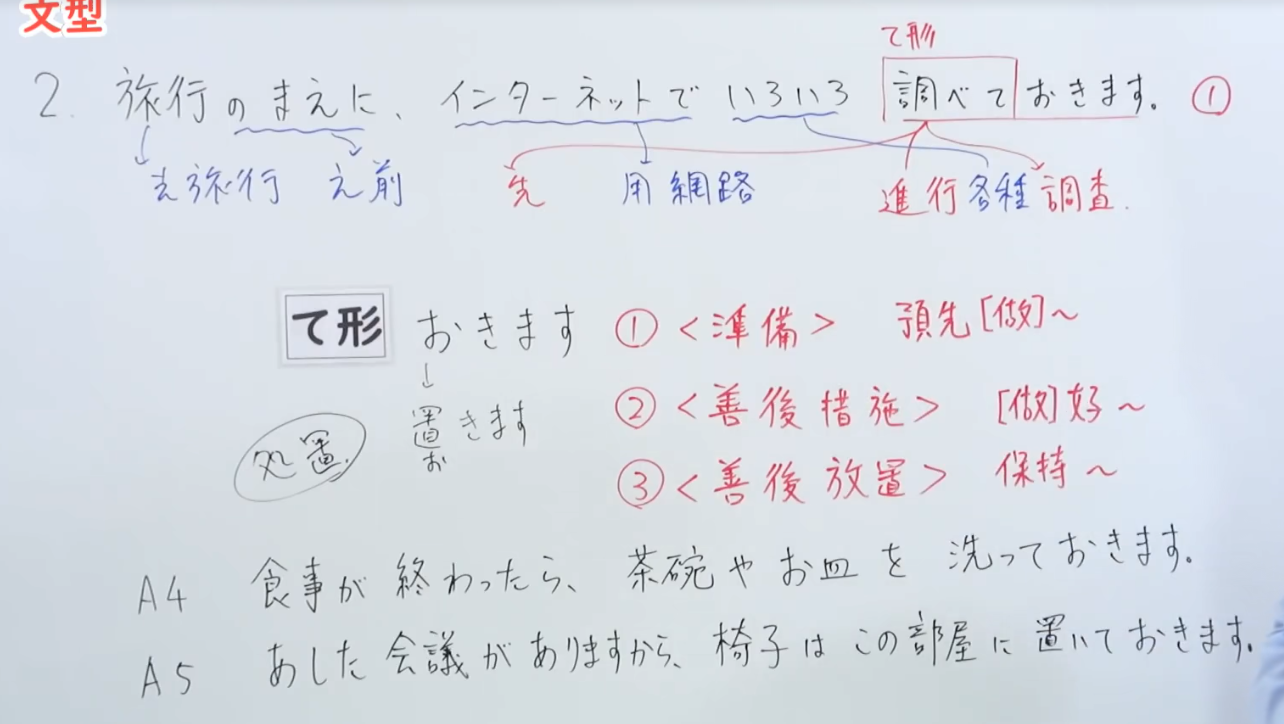 文型
て形
2. 旅行のまえに、インターネットで いろいろ 調べて おきます。 ①
去旅行 之前 先 用網路 進行各種調査.
て形 おきます ① <準備> 預先[做]~
置きます ② <善後措施> [做]好~
お
処置. ③ <善後放置> 保持~
A4 食事が 終わったら、茶碗や お皿を 洗っておきます.
A5 あした 会議が ありますから、椅子は この部屋に 置いておきます.